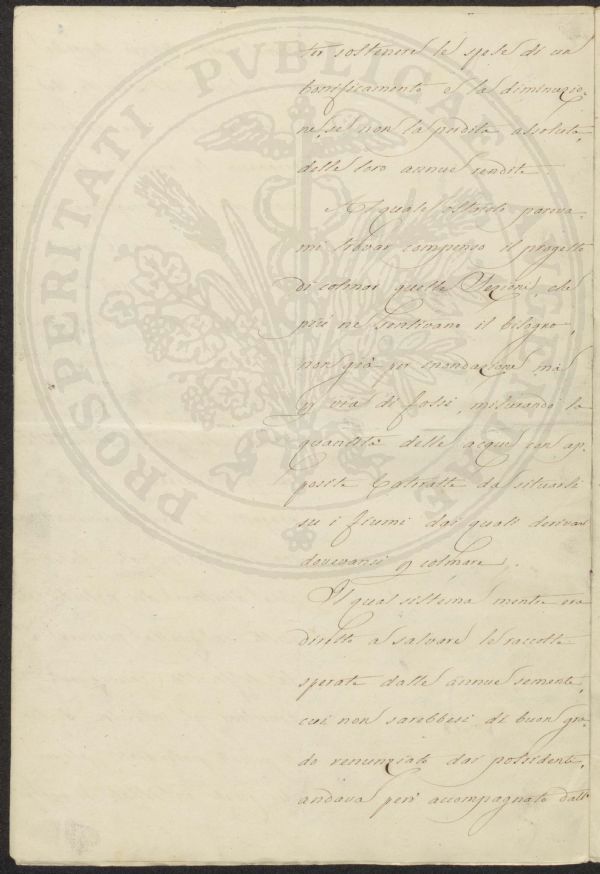 PROSPERITATI PUBLICAE AUGENDAE
ter sostenere le spese di un
bonificamento e la diminuzio-
ne, se non la perdita assoluta,
delle loro annue rendite.
Al quale ostacolo parea-
mi trovar compenso il progetto
di colmar quelle Sezioni, che
più ne sentivano il bisogno,
non già per inondazione, ma
p via di fossi, misurando la
quantità delle acque con ap-
posite Cateratte da situarsi
su i fiumi dai quali derivar
dovevansi p colmare.
Il qual sistema mentre era
diretto a salvare le raccolte
sperate dalle annue semente,
cui non sarebbesi di buon gra-
do renunziato dai possidenti,
andava però accompagnato dall'